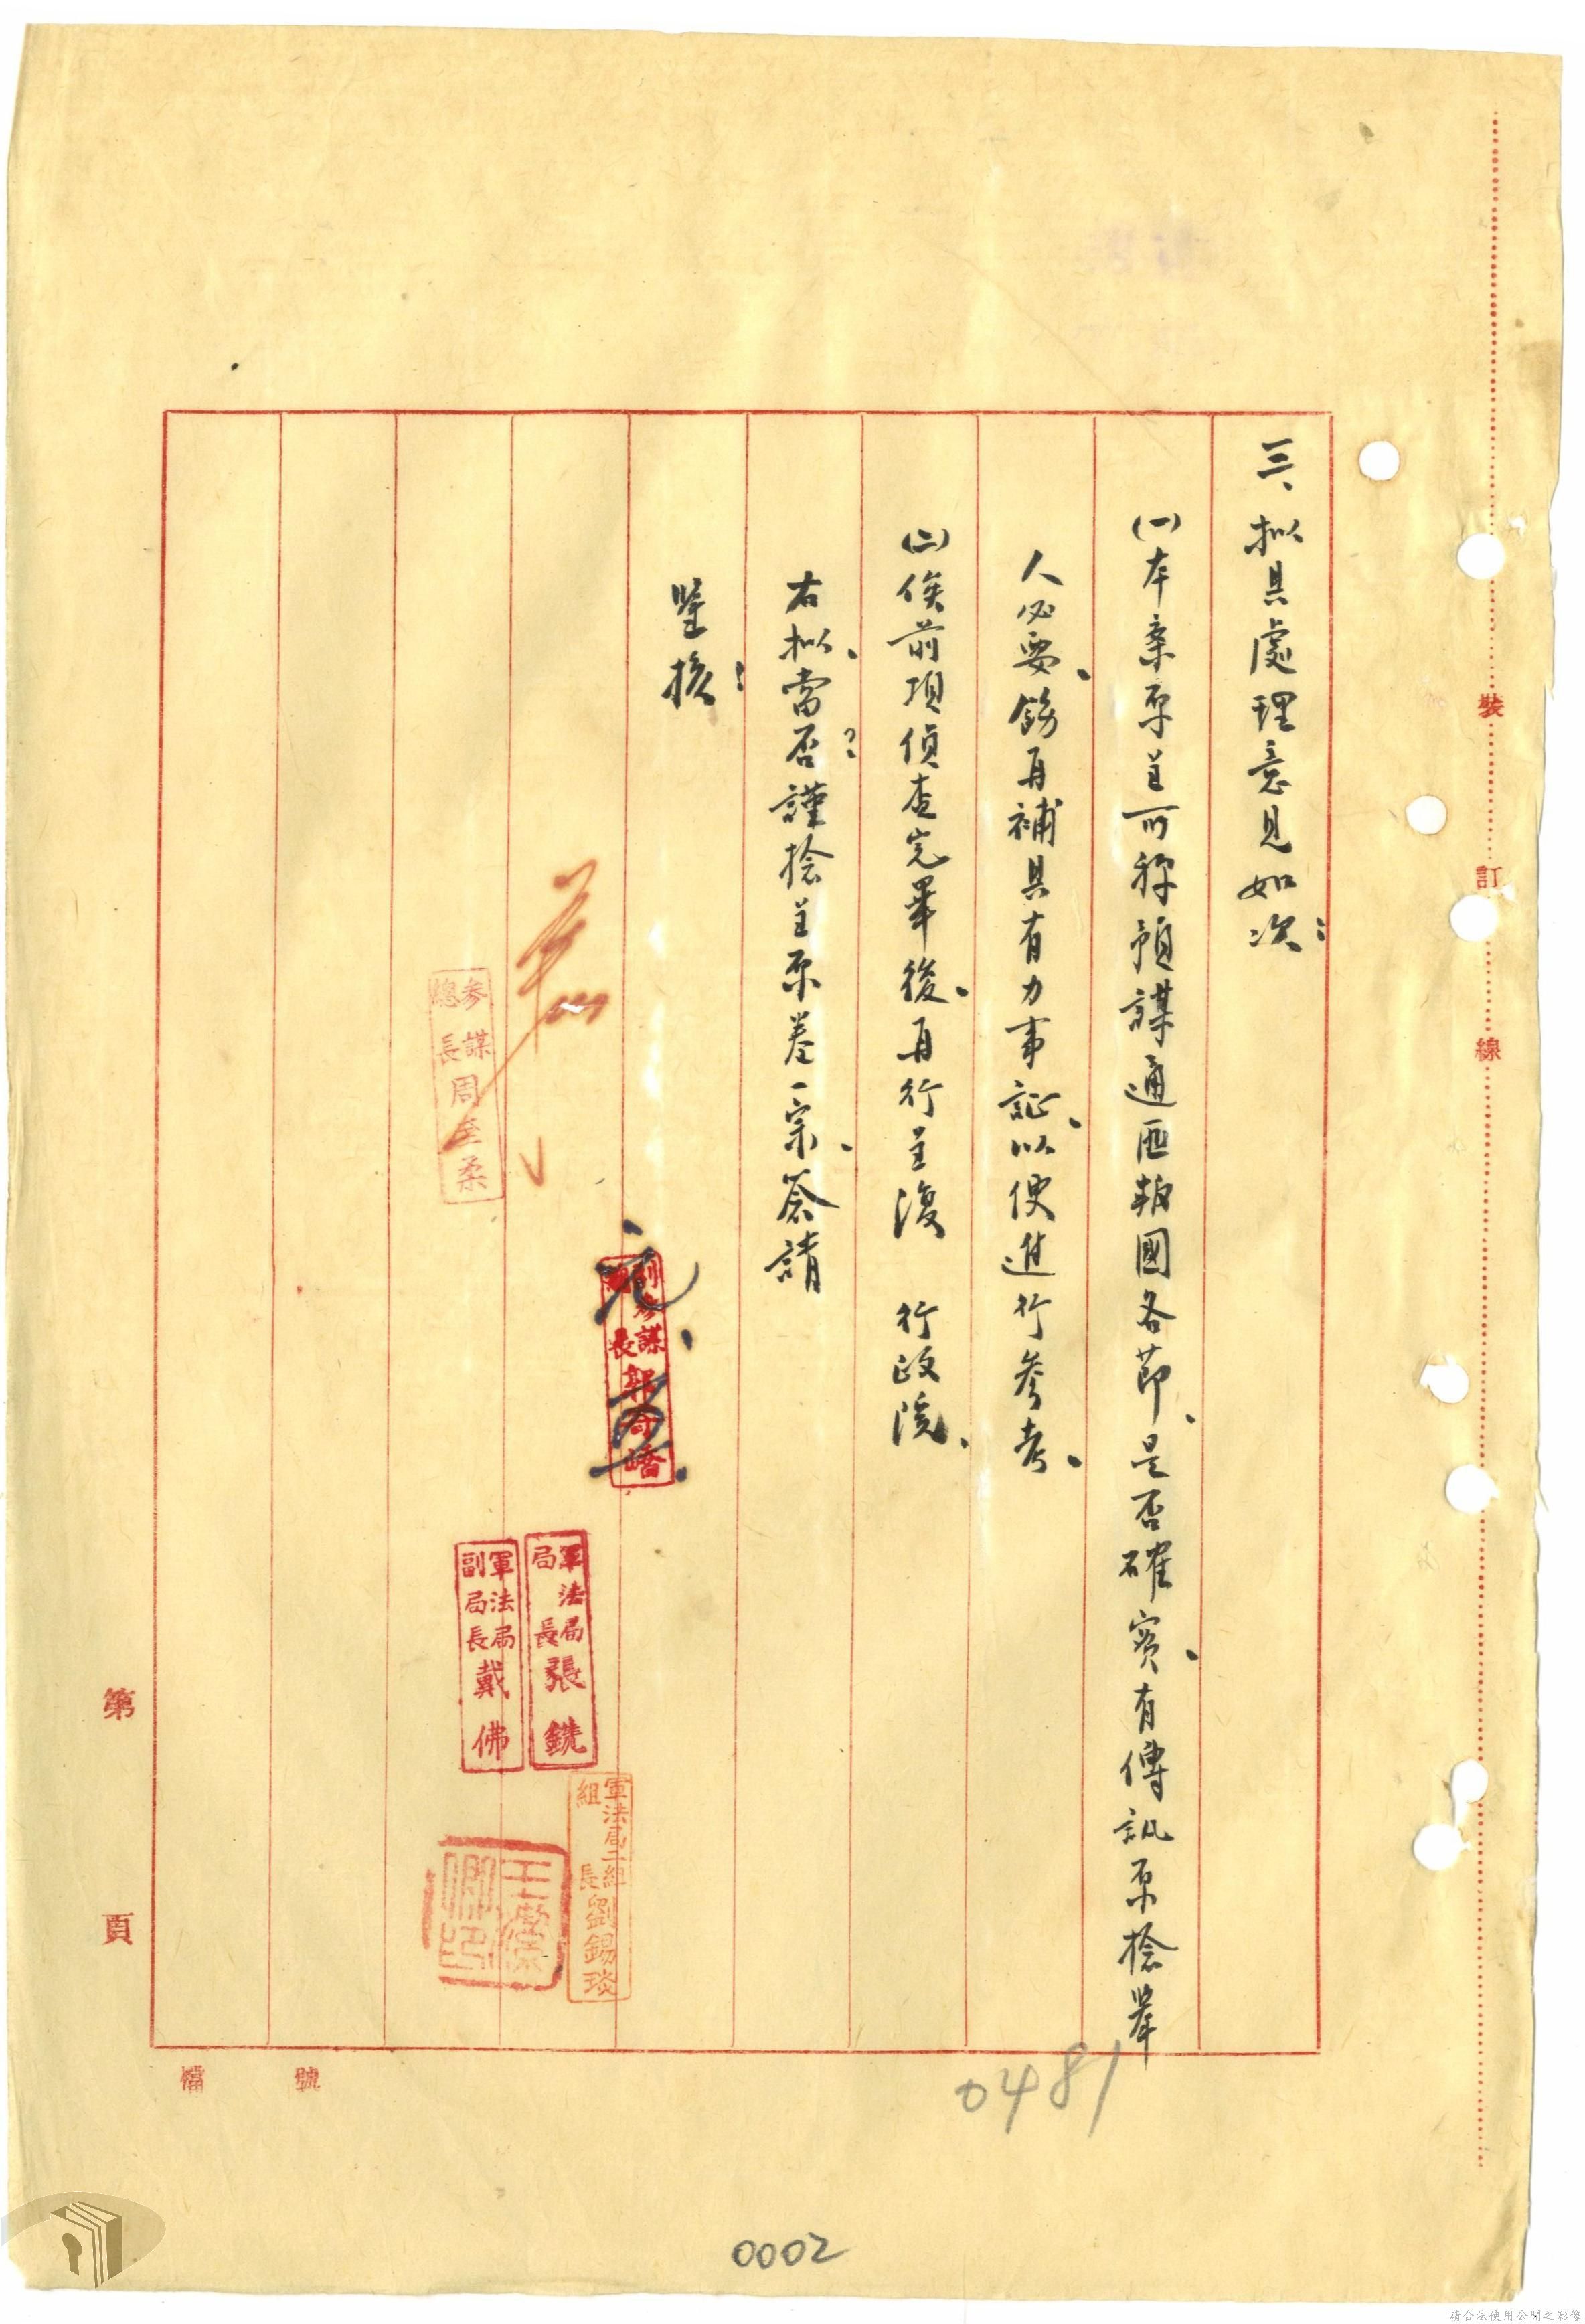 三、拟具處理意見如次：
(一)本案原呈所稱預謀通匪叛國各節、是否確實、有傳訊原檢舉
人必要、飭再補具有力事証、以便進行參考、
(二)俟前項偵查完畢後、再行呈復 行政院、
右拟、當否？謹檢呈原卷一宗、簽請
鑒核：
參謀總長周至柔
副參謀長郭寄嶠
元、
軍法局局長張鏡
軍法局副局長戴佛
軍法局二組組長劉錫琰
裝
訂
線
第
頁
檔
號
0481
0002
請合法使用公開之影像